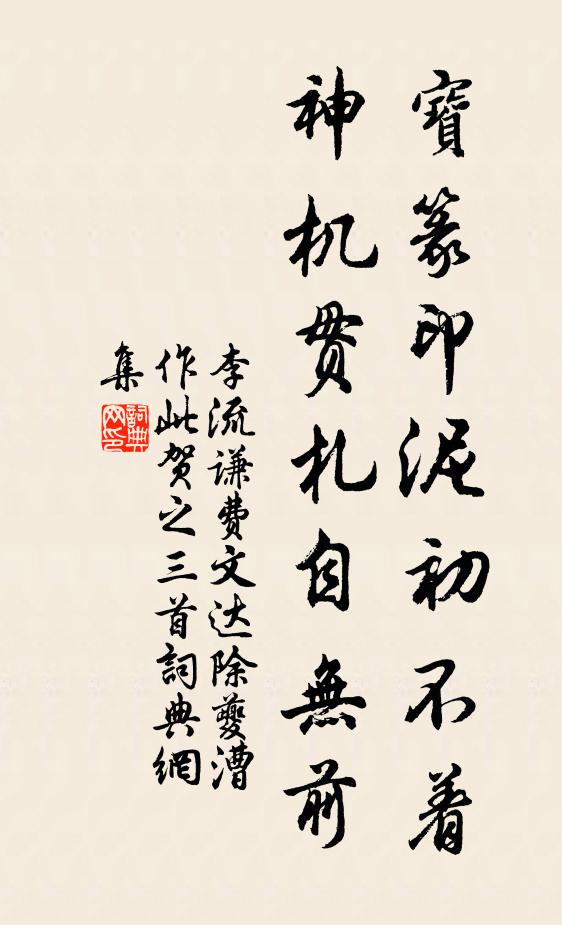 寶篆印泥初不着
神机贯札自無前
李流謙費文达除夔漕
作此贺之三首詞典網
集
詞典
网印